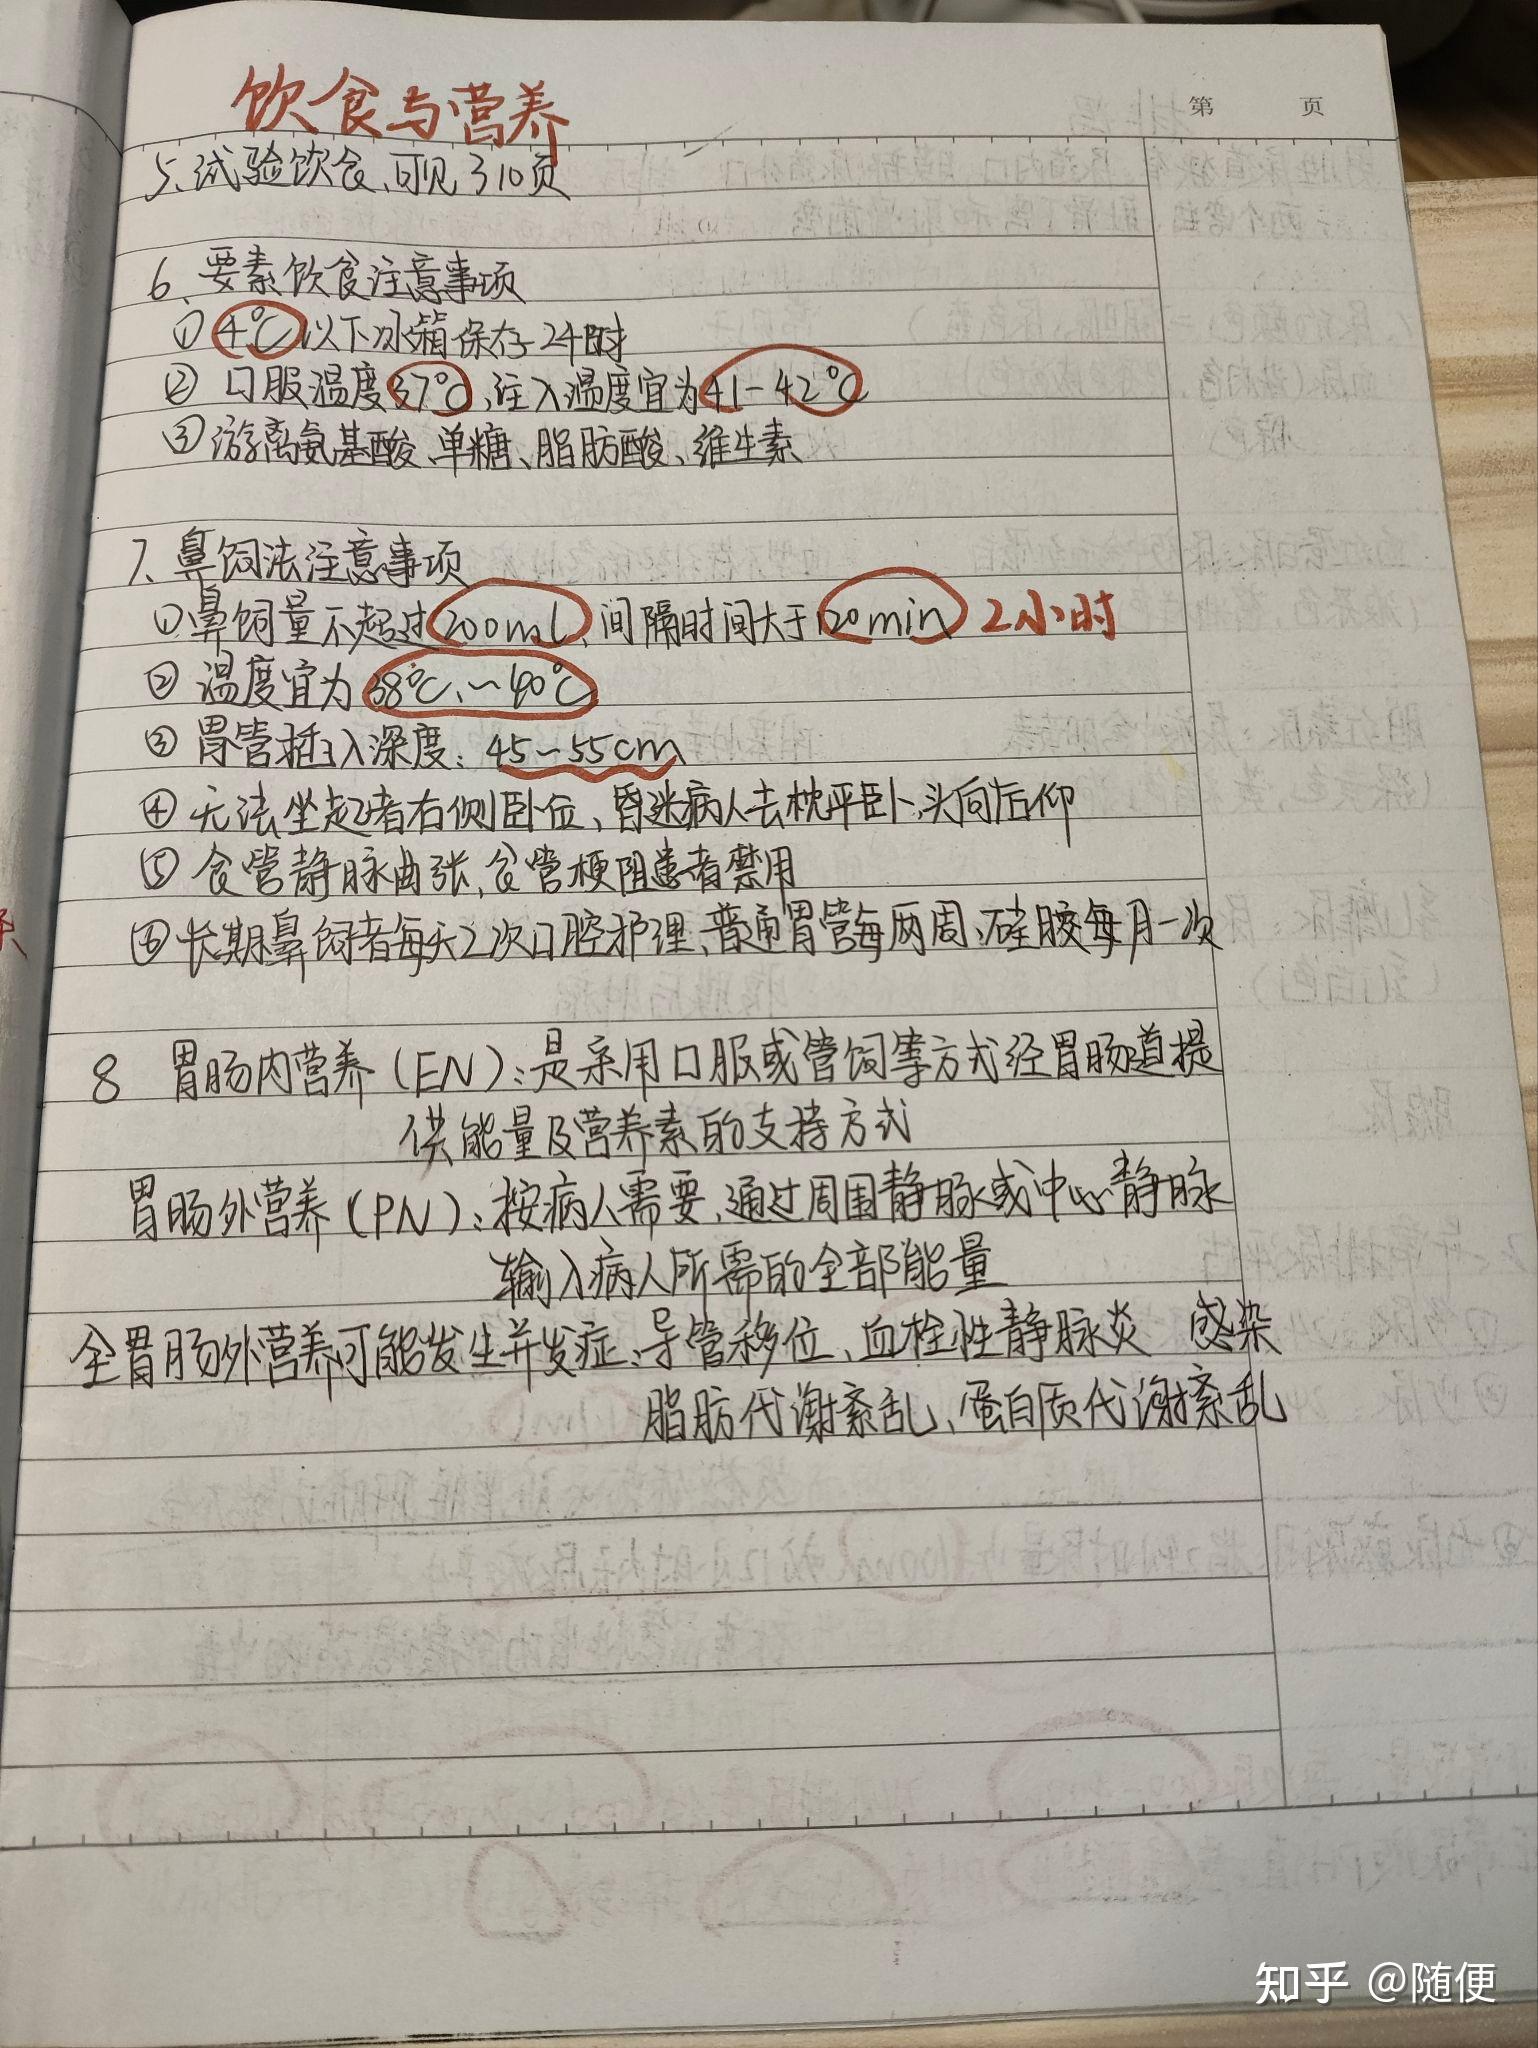 第 页
饮食与营养
5、试验饮食、可见310页
6、要素饮食注意事项
① 4℃以下冰箱保存24时
② 口服温度37℃、注入温度宜为41-42℃
③游离氨基酸、单糖、脂肪酸、维生素
7、鼻饲法注意事项
①鼻饲量不超过200ml、间隔时间大于120min 2小时
② 温度宜为38℃、~40℃
③ 胃管插入深度：45~55cm
④ 无法坐起者右侧卧位、昏迷病人去枕平卧、头向后仰
⑤ 食管静脉曲张、食管梗阻患者禁用
⑥长期鼻饲者每天2次口腔护理、普通胃管每两周、硅胶每月一次
8 胃肠内营养（EN）：是采用口服或管饲等方式经胃肠道提
供能量及营养素的支持方式
胃肠外营养（PN）：按病人需要、通过周围静脉或中心静脉
输入病人所需的全部能量
全胃肠外营养可能发生并发症：导管移位、血栓性静脉炎 感染
脂肪代谢紊乱、蛋白质代谢紊乱
知乎 @随便